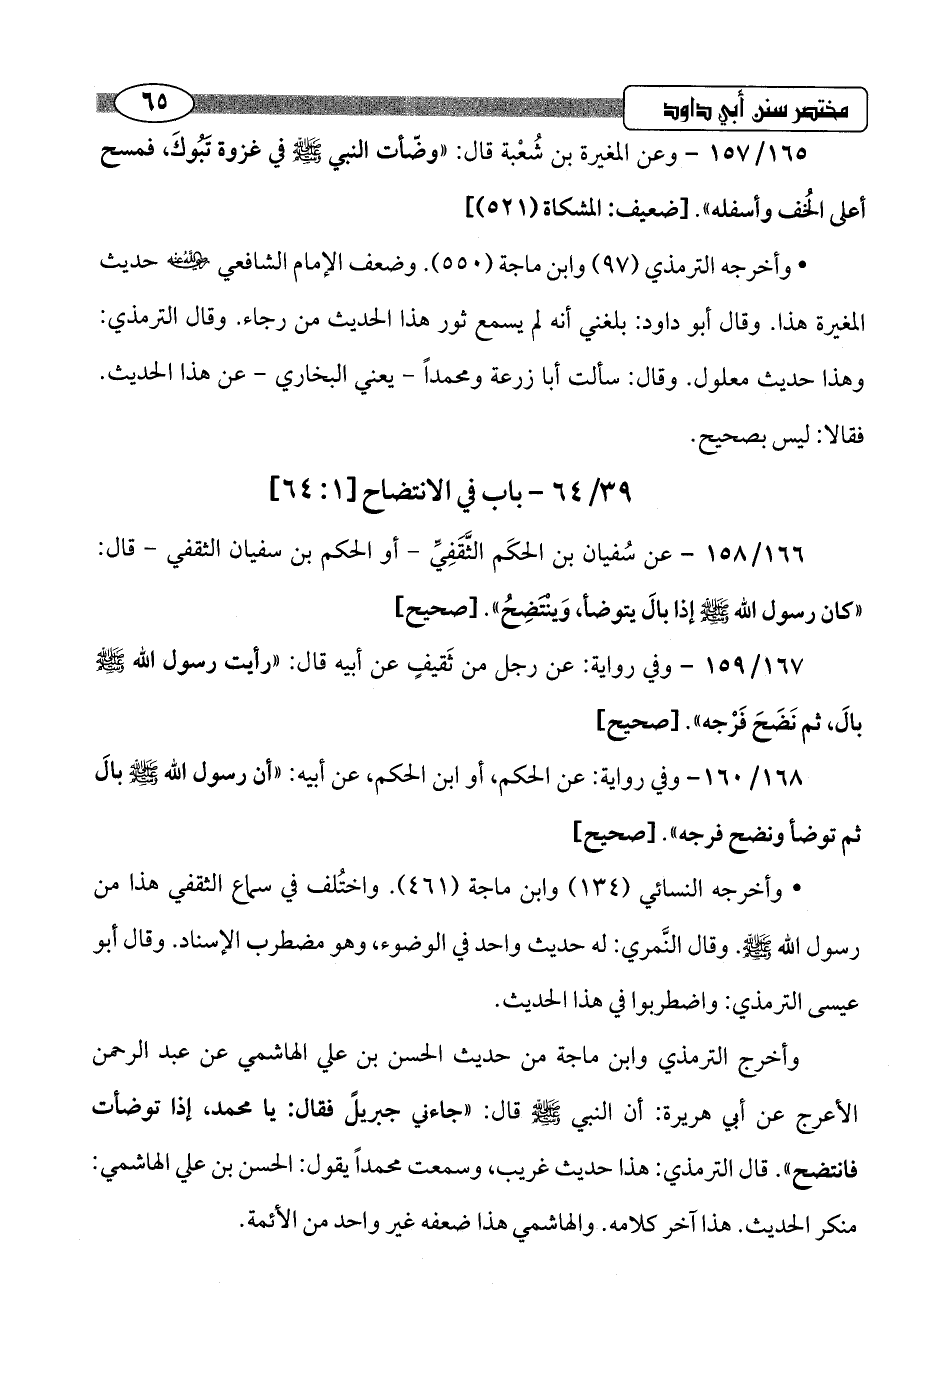 مختصر سنن أبي داود
٦٥
١٥٧/١٦٥ - وعن المغيرة بن شُعْبة قال: «وضّأت النبي ﷺ في غزوة تَبُوكَ، فمسح
أعلى الخُف وأسفله». [ضعيف: المشكاة (٥٢١)]
• وأخرجه الترمذي (٩٧) وابن ماجة (٥٥٠). وضعف الإمام الشافعي رضي الله عنه حديث
المغيرة هذا. وقال أبو داود: بلغني أنه لم يسمع ثور هذا الحديث من رجاء. وقال الترمذي:
وهذا حديث معلول. وقال: سألت أبا زرعة ومحمداً - يعني البخاري - عن هذا الحديث.
فقالا: ليس بصحيح.
٦٤/٣٩ - باب في الانتضاح [١: ٦٤]
١٥٨/١٦٦ - عن سُفيان بن الحكَم الثَّقَفِيِّ - أو الحكم بن سفيان الثقفي - قال:
«كان رسول الله ﷺ إذا بالَ يتوضأ، وَينْتَضِحُ». [صحيح]
١٥٩/١٦٧ - وفي رواية: عن رجل من ثَقيفٍ عن أبيه قال: «رأيت رسول الله ﷺ
بالَ، ثم نَضَحَ فَرْجه». [صحيح]
١٦٠/١٦٨- وفي رواية: عن الحكم، أو ابن الحكم، عن أبيه: «أن رسول الله ﷺ بالَ
ثم توضأ ونضح فرجه». [صحيح]
• وأخرجه النسائي (١٣٤) وابن ماجة (٤٦١). واختُلف في سماع الثقفي هذا من
رسول الله ﷺ. وقال النَّمري: له حديث واحد في الوضوء، وهو مضطرب الإسناد. وقال أبو
عيسى الترمذي: واضطربوا في هذا الحديث.
وأخرج الترمذي وابن ماجة من حديث الحسن بن علي الهاشمي عن عبد الرحمن
الأعرج عن أبي هريرة: أن النبي ﷺ قال: «جاءني جبريلُ فقال: يا محمد، إذا توضأت
فانتضح». قال الترمذي: هذا حديث غريب، وسمعت محمداً يقول: الحسن بن علي الهاشمي:
منكر الحديث. هذا آخر كلامه. والهاشمي هذا ضعفه غير واحد من الأئمة.